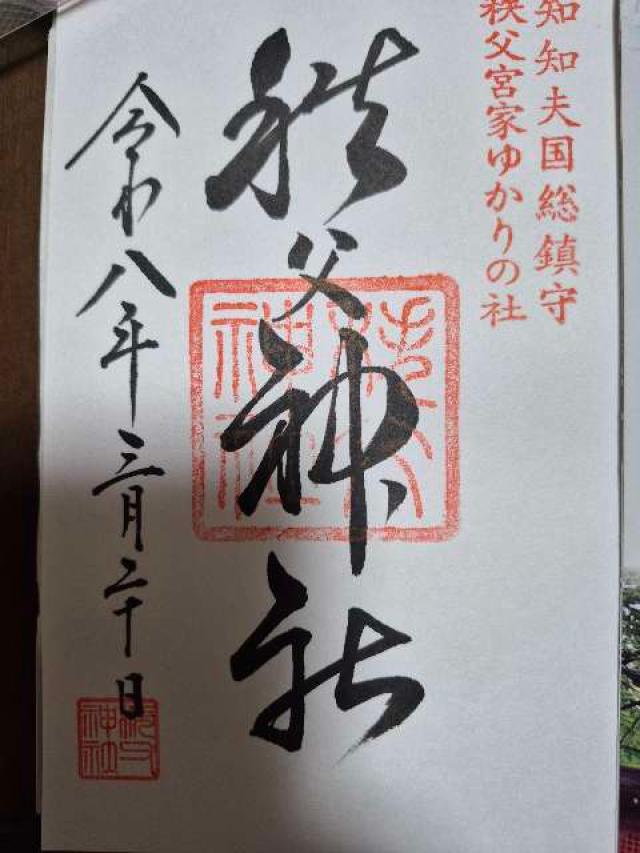 知知夫国総鎮守
秩父宮家ゆかりの社
秩父神社
秩父神社
令和八年三月二十日
秩父神社